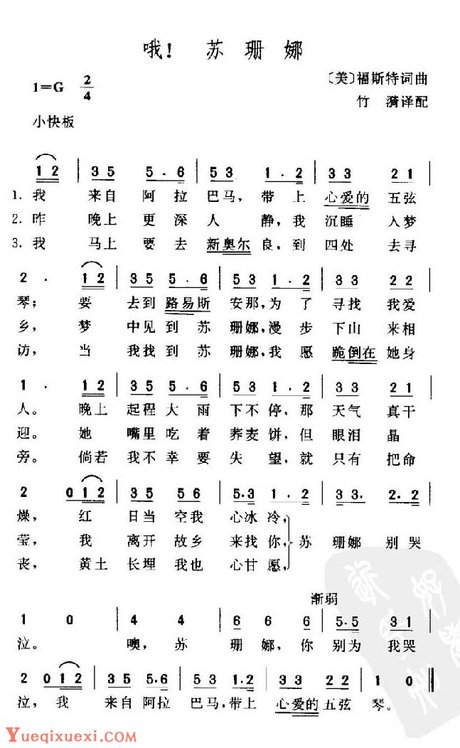 哦! 苏珊娜
1=G 2/4
〔美〕福斯特词曲
竹漪译配
小快板
1 2 | 3 5 5 · 6 | 5 3 1 · 2 | 3 3 2 1 |
1. 我 来自阿拉巴马,带上心爱的五弦
2. 昨 晚上更深人静,我沉睡入梦
3. 我 马上要去新奥尔良,到四处去寻
2 · 1 2 | 3 5 5 · 6 | 5 3 1 · 2 | 3 3 2 2 |
琴;要去到路易斯安那,为了寻找我爱
乡,梦中见到苏珊娜,漫步下山来相
访,当我找到苏珊娜,我愿跪倒在她身
人。晚上起程大雨下不停,那天气真干
迎。她嘴里吃着荞麦饼,但眼泪晶
旁。倘若我不幸要失望,就只有把命
2 0 1 2 | 3 5 5 6 |
燥,红日当空我心冰冷,
莹,我离开故乡来找你,苏珊娜别哭
丧,黄土长埋我也心甘愿,
渐弱
泣。噢,苏珊娜,你别为我哭
2 0 1 2 | 3 5 5 · 6 | 5 3 1 · 2 |
泣,我来自阿拉巴马,带上心爱的五弦琴。
Yueqixuexi.com